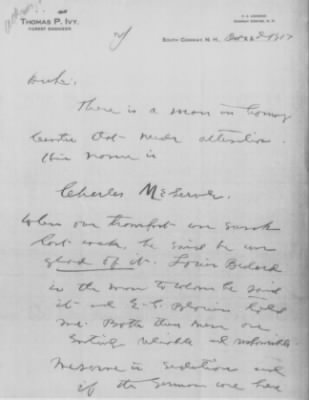 THOMAS P. IVY,
FOREST ENGINEER
P. O. ADDRESS
CONWAY CENTER, N. H.
SOUTH CONWAY, N. H., Oct 23d 1917
Dear Sir:
There is a man in Conway
Center that needs attention.
His name is
Charles Meserve.
When our transport was sunk
last week, he said he was
glad of it. Louis
is the man to whom he said
it and E. E. told
me. Both these men are
entirely reliable and
Meserve is seditious and
if the German were here